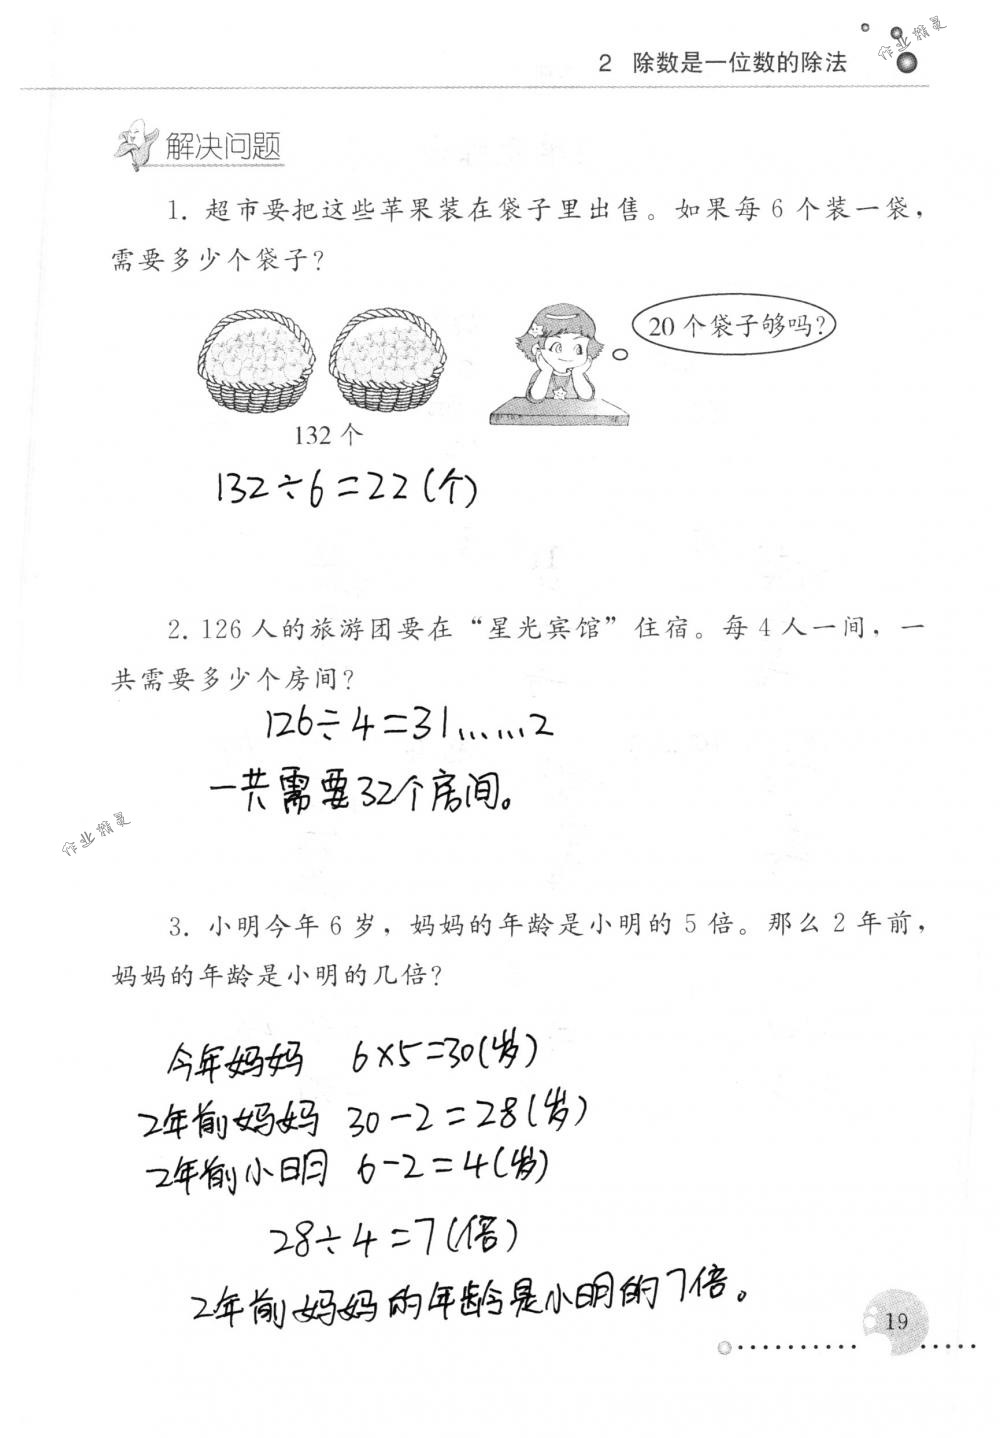 作业精灵
2 除数是一位数的除法
解决问题
1. 超市要把这些苹果装在袋子里出售。如果每 6 个装一袋，
需要多少个袋子？
20 个袋子够吗？
132 个
132÷6=22(个)
2. 126 人的旅游团要在“星光宾馆”住宿。每 4 人一间，一
共需要多少个房间？
126÷4=31……2
一共需要32个房间。
作业精灵
3. 小明今年 6 岁，妈妈的年龄是小明的 5 倍。那么 2 年前，
妈妈的年龄是小明的几倍？
今年妈妈 6×5=30(岁)
2年前妈妈 30-2=28(岁)
2年前小明 6-2=4(岁)
28÷4=7(倍)
2年前妈妈的年龄是小明的7倍。
19